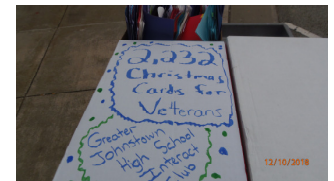 2,232
Christmas
Cards for
Veterans
Greater
Johnstown
High School
Interact
Club
12/10/2018